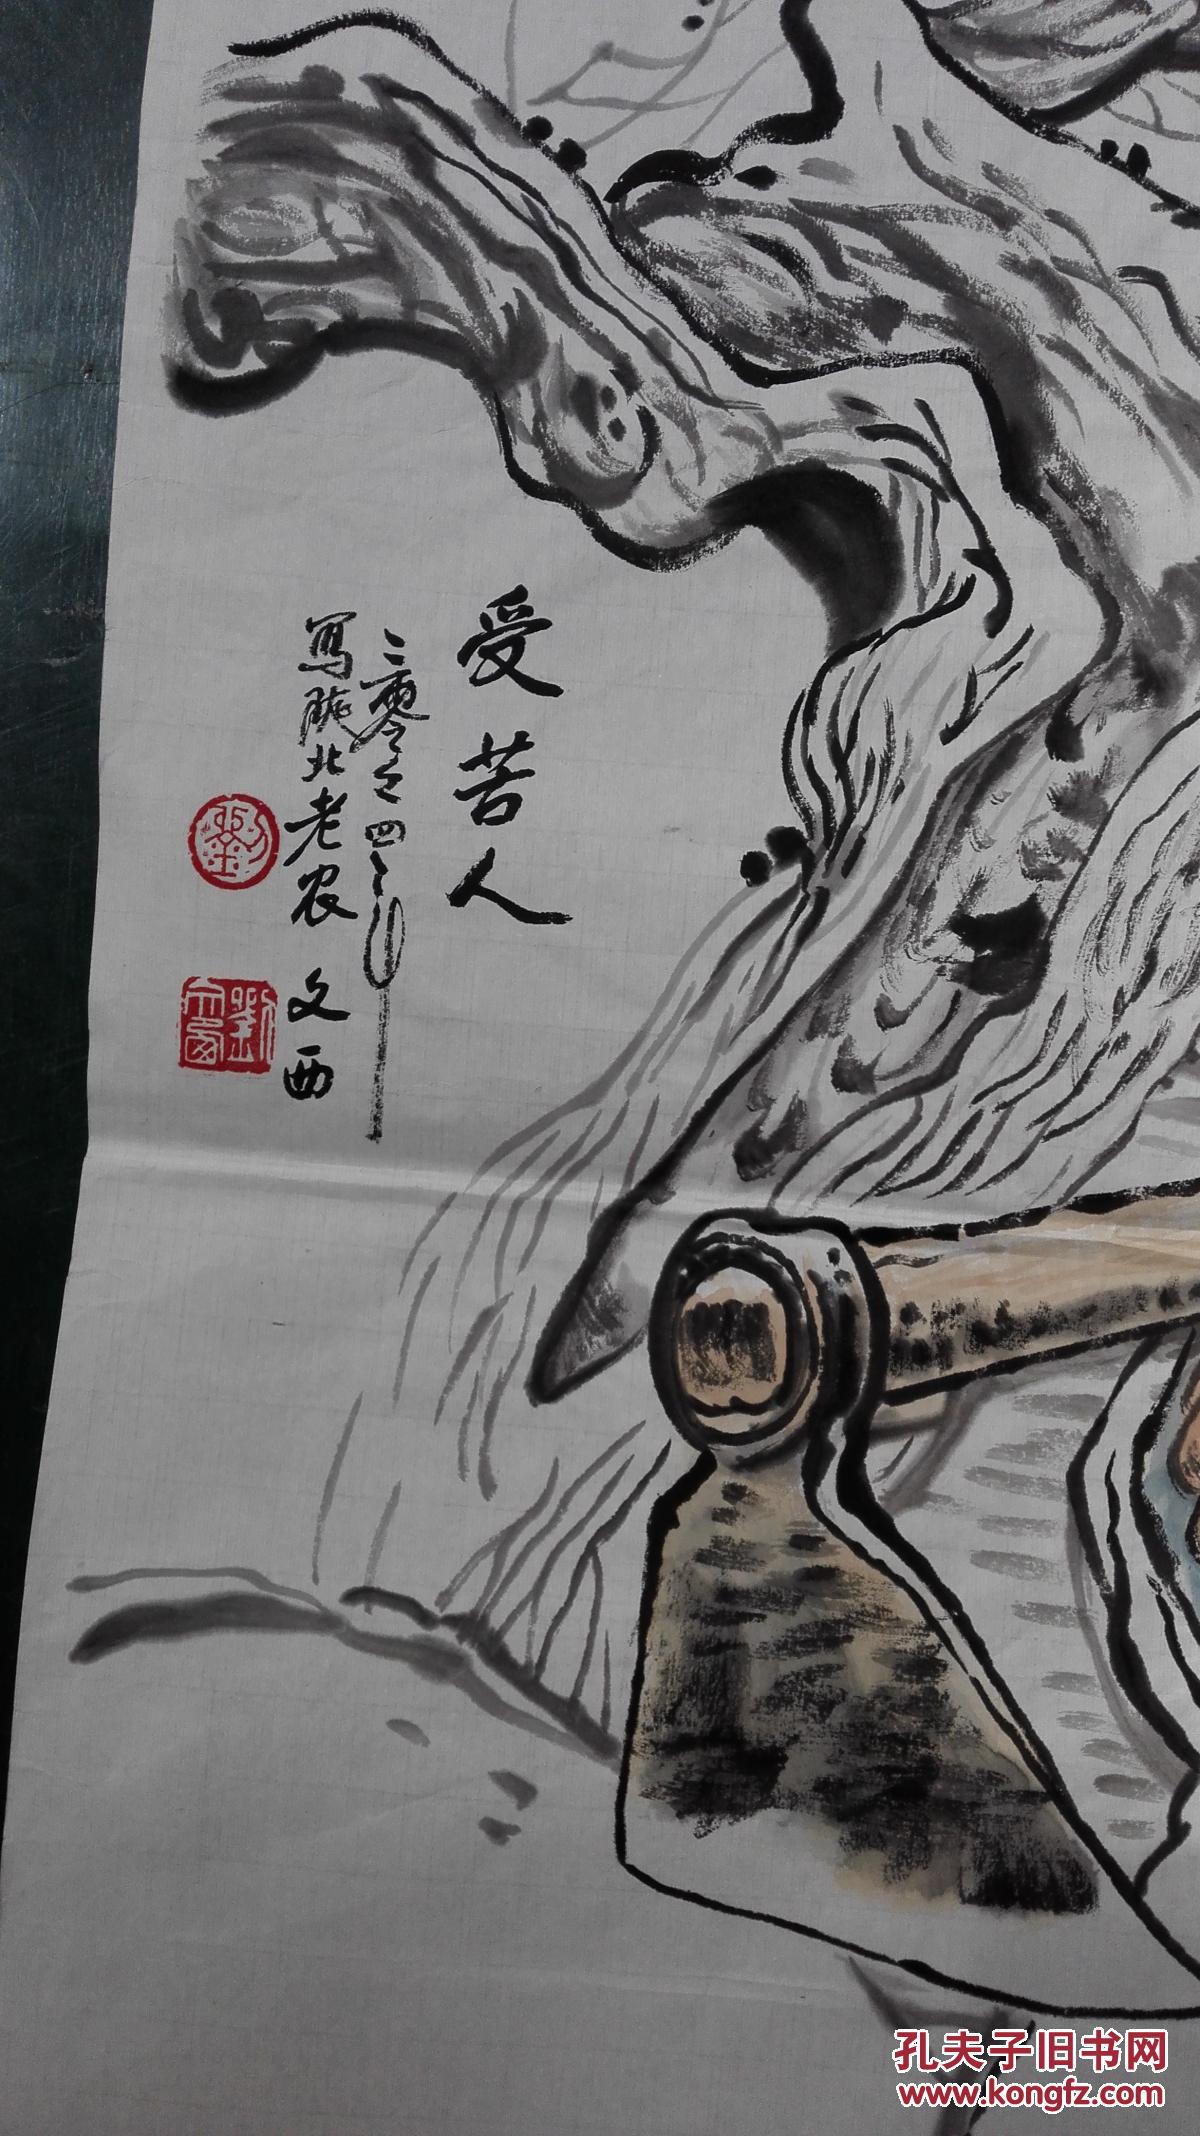 受苦人
二零零四年
写陕北老农 文西
劉
劉文西
孔夫子旧书网
www.kongfz.com